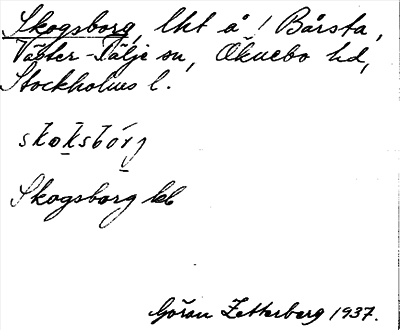 Skogsborg, lht å ! Bårsta,
Väster-Tälje sn, Öknebo hd,
Stockholms l.
skoksbórj
Skogsborg kb
Göran Zetterberg 1937.